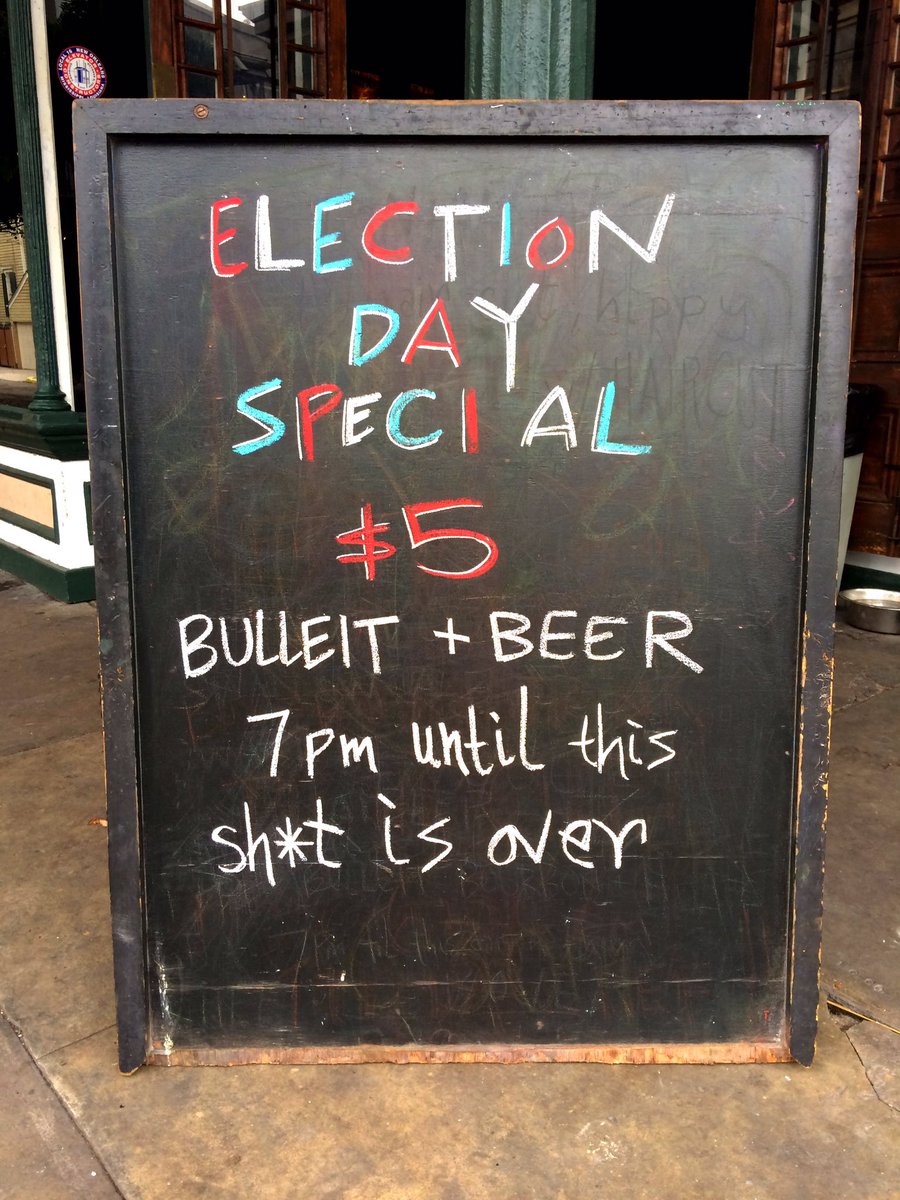 ELECTION
DAY
SPECIAL
$5
BULLEIT + BEER
7pm until this
sh*t is over